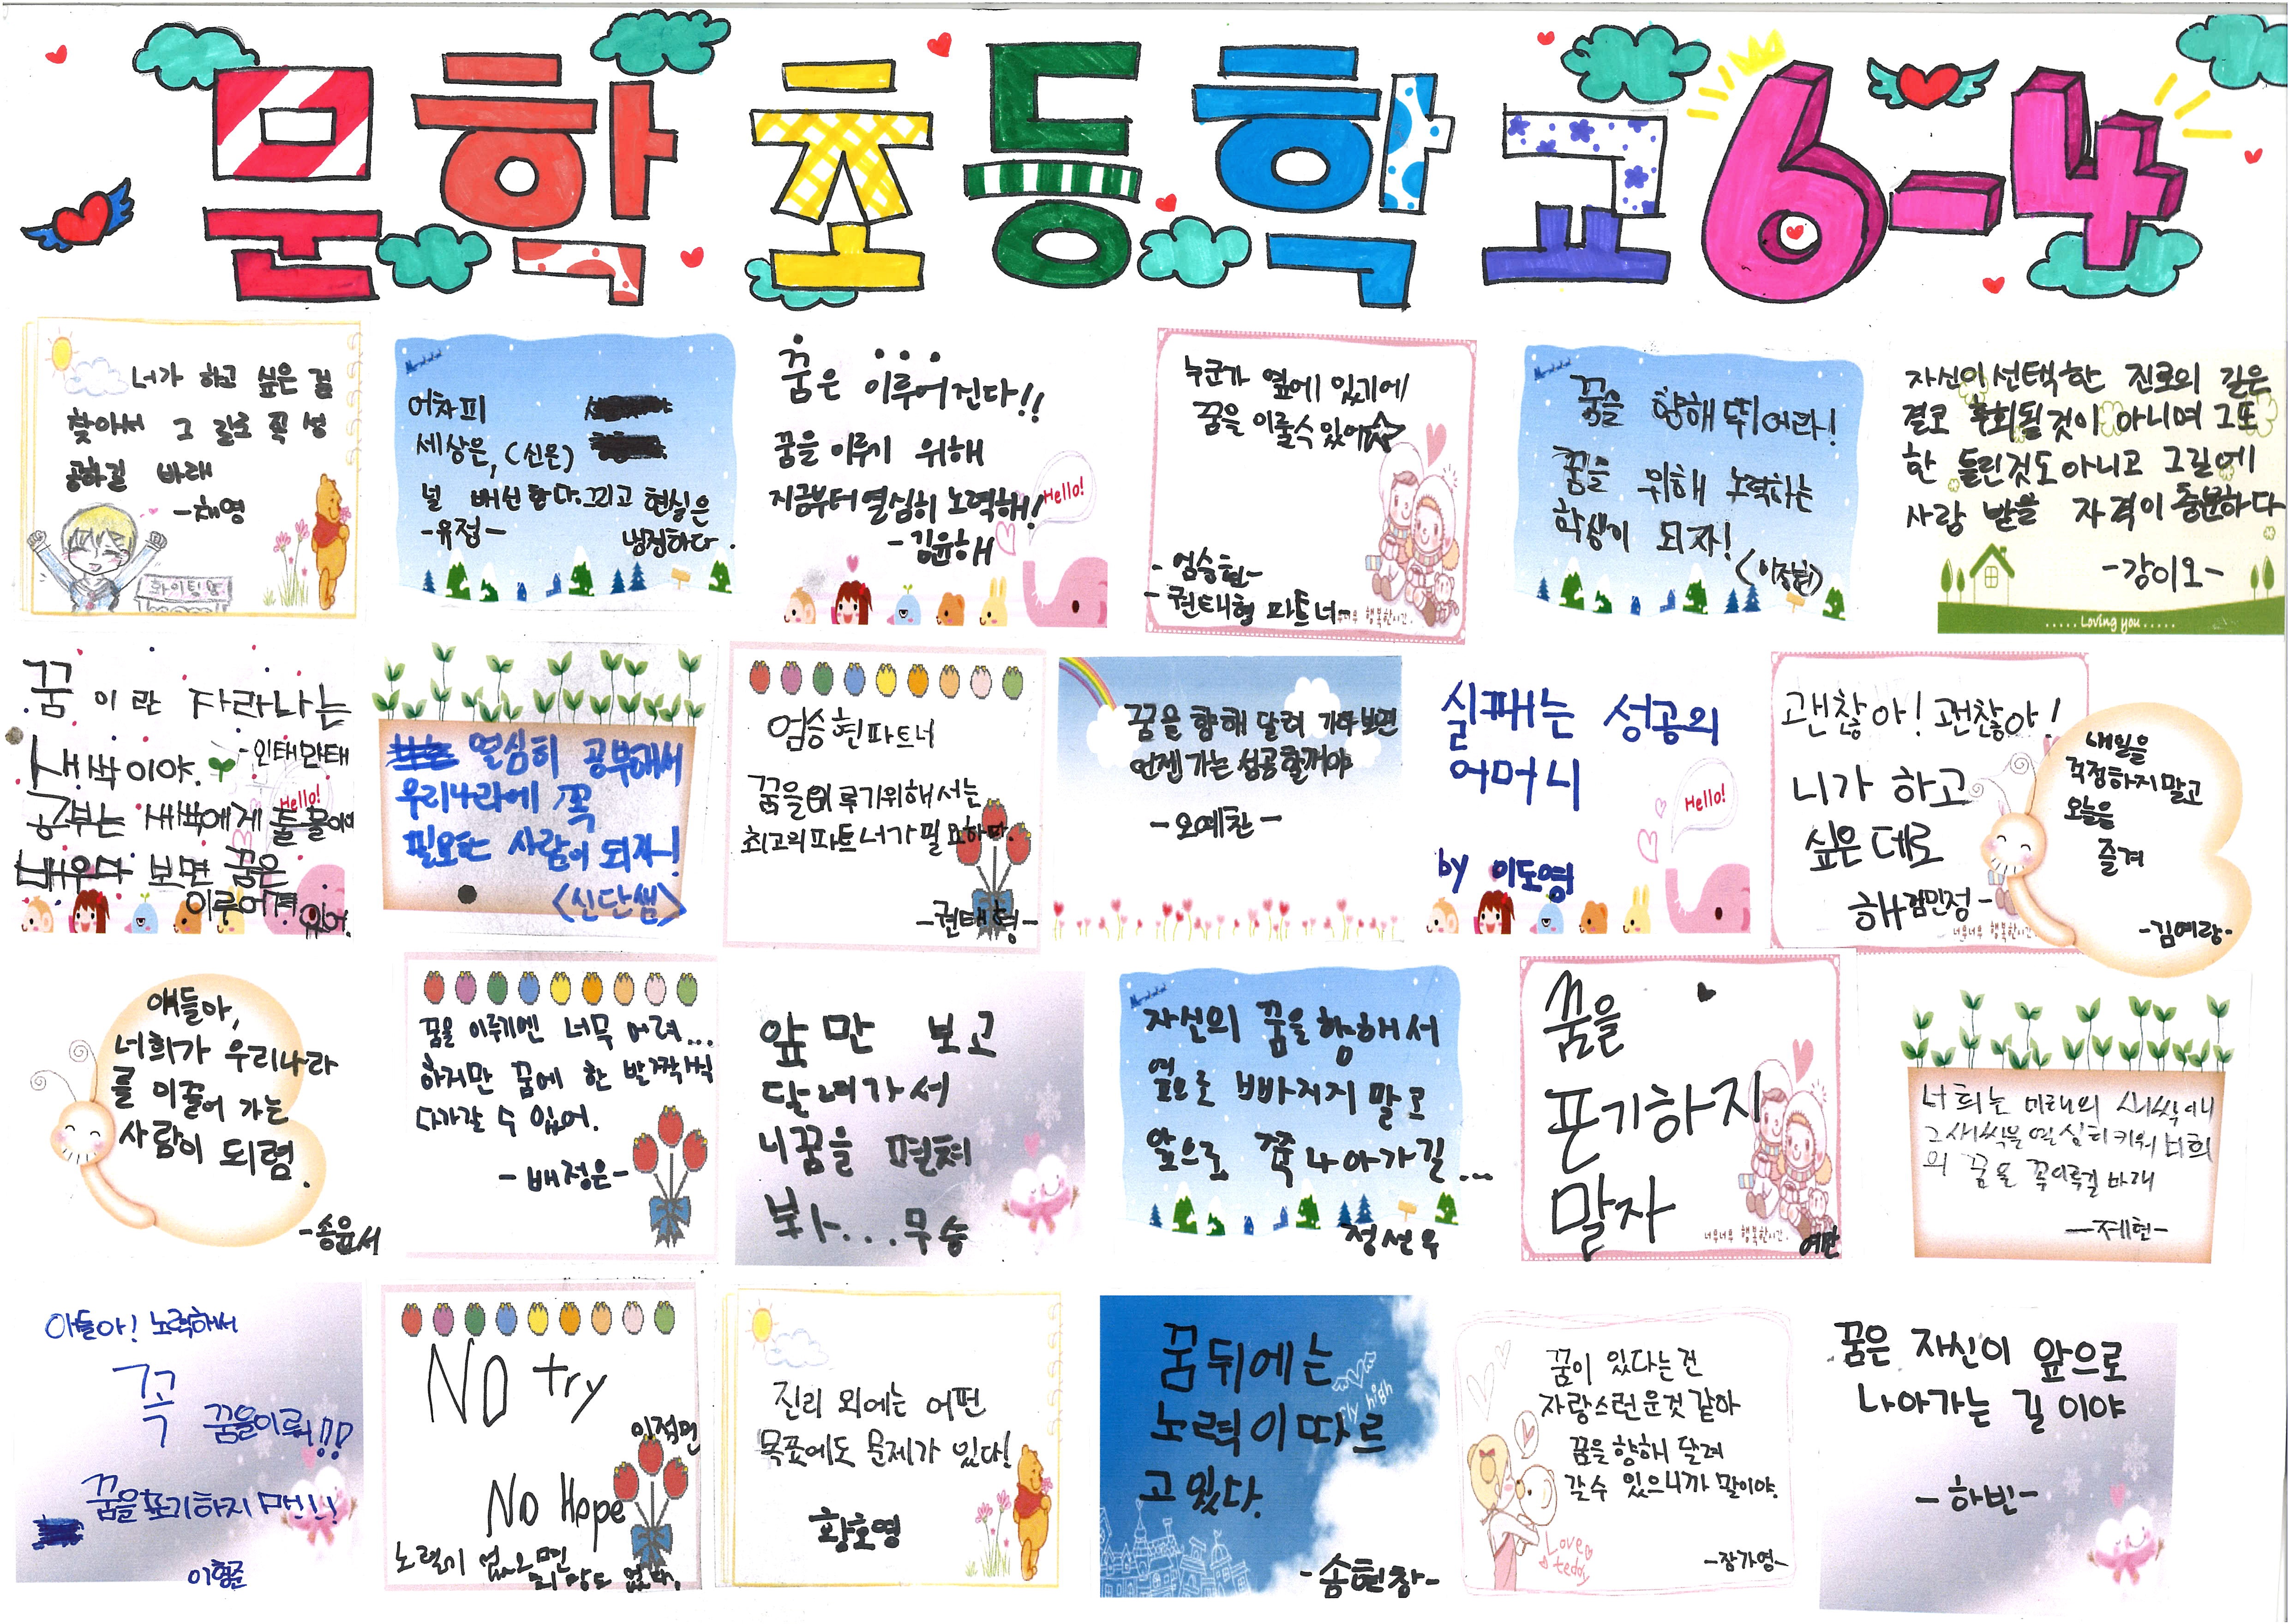 문학 초등학교 6-4
너가 하고 싶은 걸
찾아서 그 길로 꼭 성
공하길 바래
-채영
화이팅
어차피
세상은, (신은)
널 배신한다. 그리고 현실은
냉정하다.
-유정-
꿈은 이루어진다!!
꿈을 이루기 위해
지금부터 열심히 노력해!
-김윤해
Hello!
누군가 옆에 있기에
꿈을 이룰수 있어☆
-엄승현-
-권태형 파트너-
행복한시간.
꿈을 향해 뛰어라!
꿈을 위해 노력하는
학생이 되자!
자신이 선택한 진로의 길은
결코 후회될것이 아니며 그또
한 틀린것도 아니고 그길에
사랑 받을 자격이 충분하다
-강이오-
.....Loving you.....
꿈 이란 자라나는
새싹이야.
-인태만태
공부는 새싹에게 줄 물이야
배우다 보면 꿈은
이루어져 있어.
Hello!
열심히 공부해서
우리나라에 꼭
필요한 사람이 되자!
<신단쌤>
엄승현파트너
꿈을 이루기위해서는
최고의파트너가필요하다.
-권태형-
꿈을 향해 달려 가다보면
언젠가는 성공할꺼야
-오예찬-
실패는 성공의
어머니
by 이도영
Hello!
괜찮아! 괜찮아!
니가 하고
싶은데로
해
김민정-
너무너무 행복한시간
내일을
걱정하지말고
오늘을
즐겨
-김예랑-
얘들아,
너희가 우리나라
를 이줄어 가는
사람이 되렴.
-송윤서
꿈을 이뤄기엔 너무 어려...
하지만 꿈에 한 발짝씩
다가갈 수 있어.
-배정은-
앞만 보고
달려가서
니꿈을 펼쳐
봐...무승
자신의 꿈을향해서
옆으로 빠지지 말고
앞으로 쭉 나아가길...
정선우
꿈을
포기하지
말자
너무너무 행복한시간.
너희는 미래의 새싹이니
그새싹을 열심히키워 너희
의 꿈을 꼭이루길바래
-제현-
얘들아! 노력해서
꼭
꿈을이뤄!!!
꿈을포기하지 마!!!
이형준
No try
이적민
No Hope
노력이 없으면
희망도 없다.
진리 외에는 어떤
목표에도 문제가 있다!
황호영
꿈 뒤에는
노력이 따르
고 있다.
fly high
-송현창-
꿈이 있다는건
자랑스런운것 같아
꿈을향해 달려
갈수 있으니까 말이야.
-장가영-
Love
teddy
꿈은 자신이 앞으로
나아가는 길 이야
-하빈-